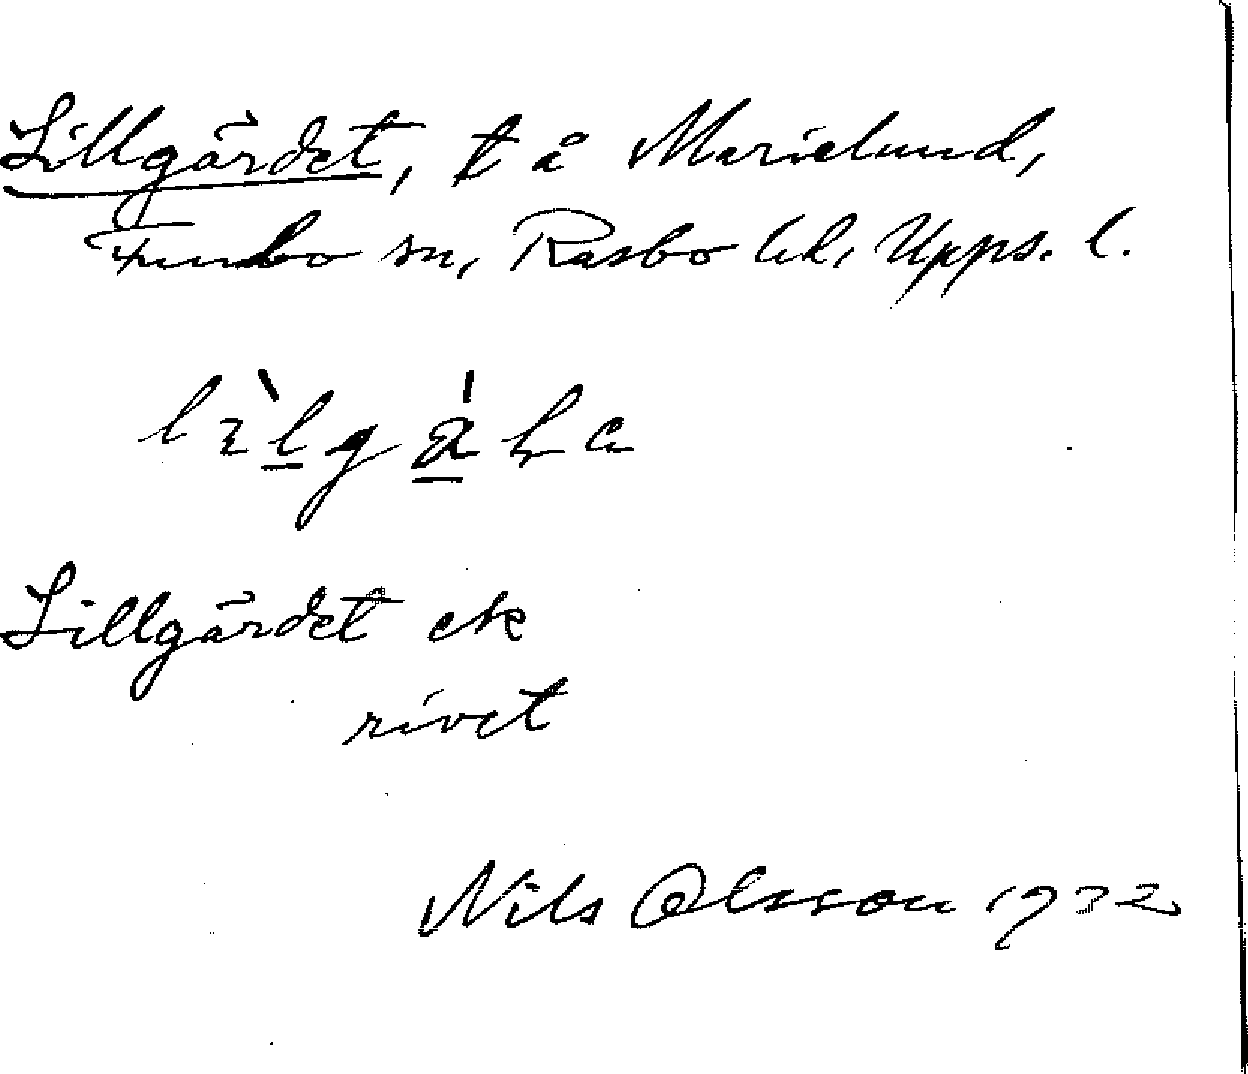 Lillgärdet, t å Marielund,
Funbo sn, Rasbo hd, Upps. l.
Lillgärdet ek
rivet
Nils Olsson 1932